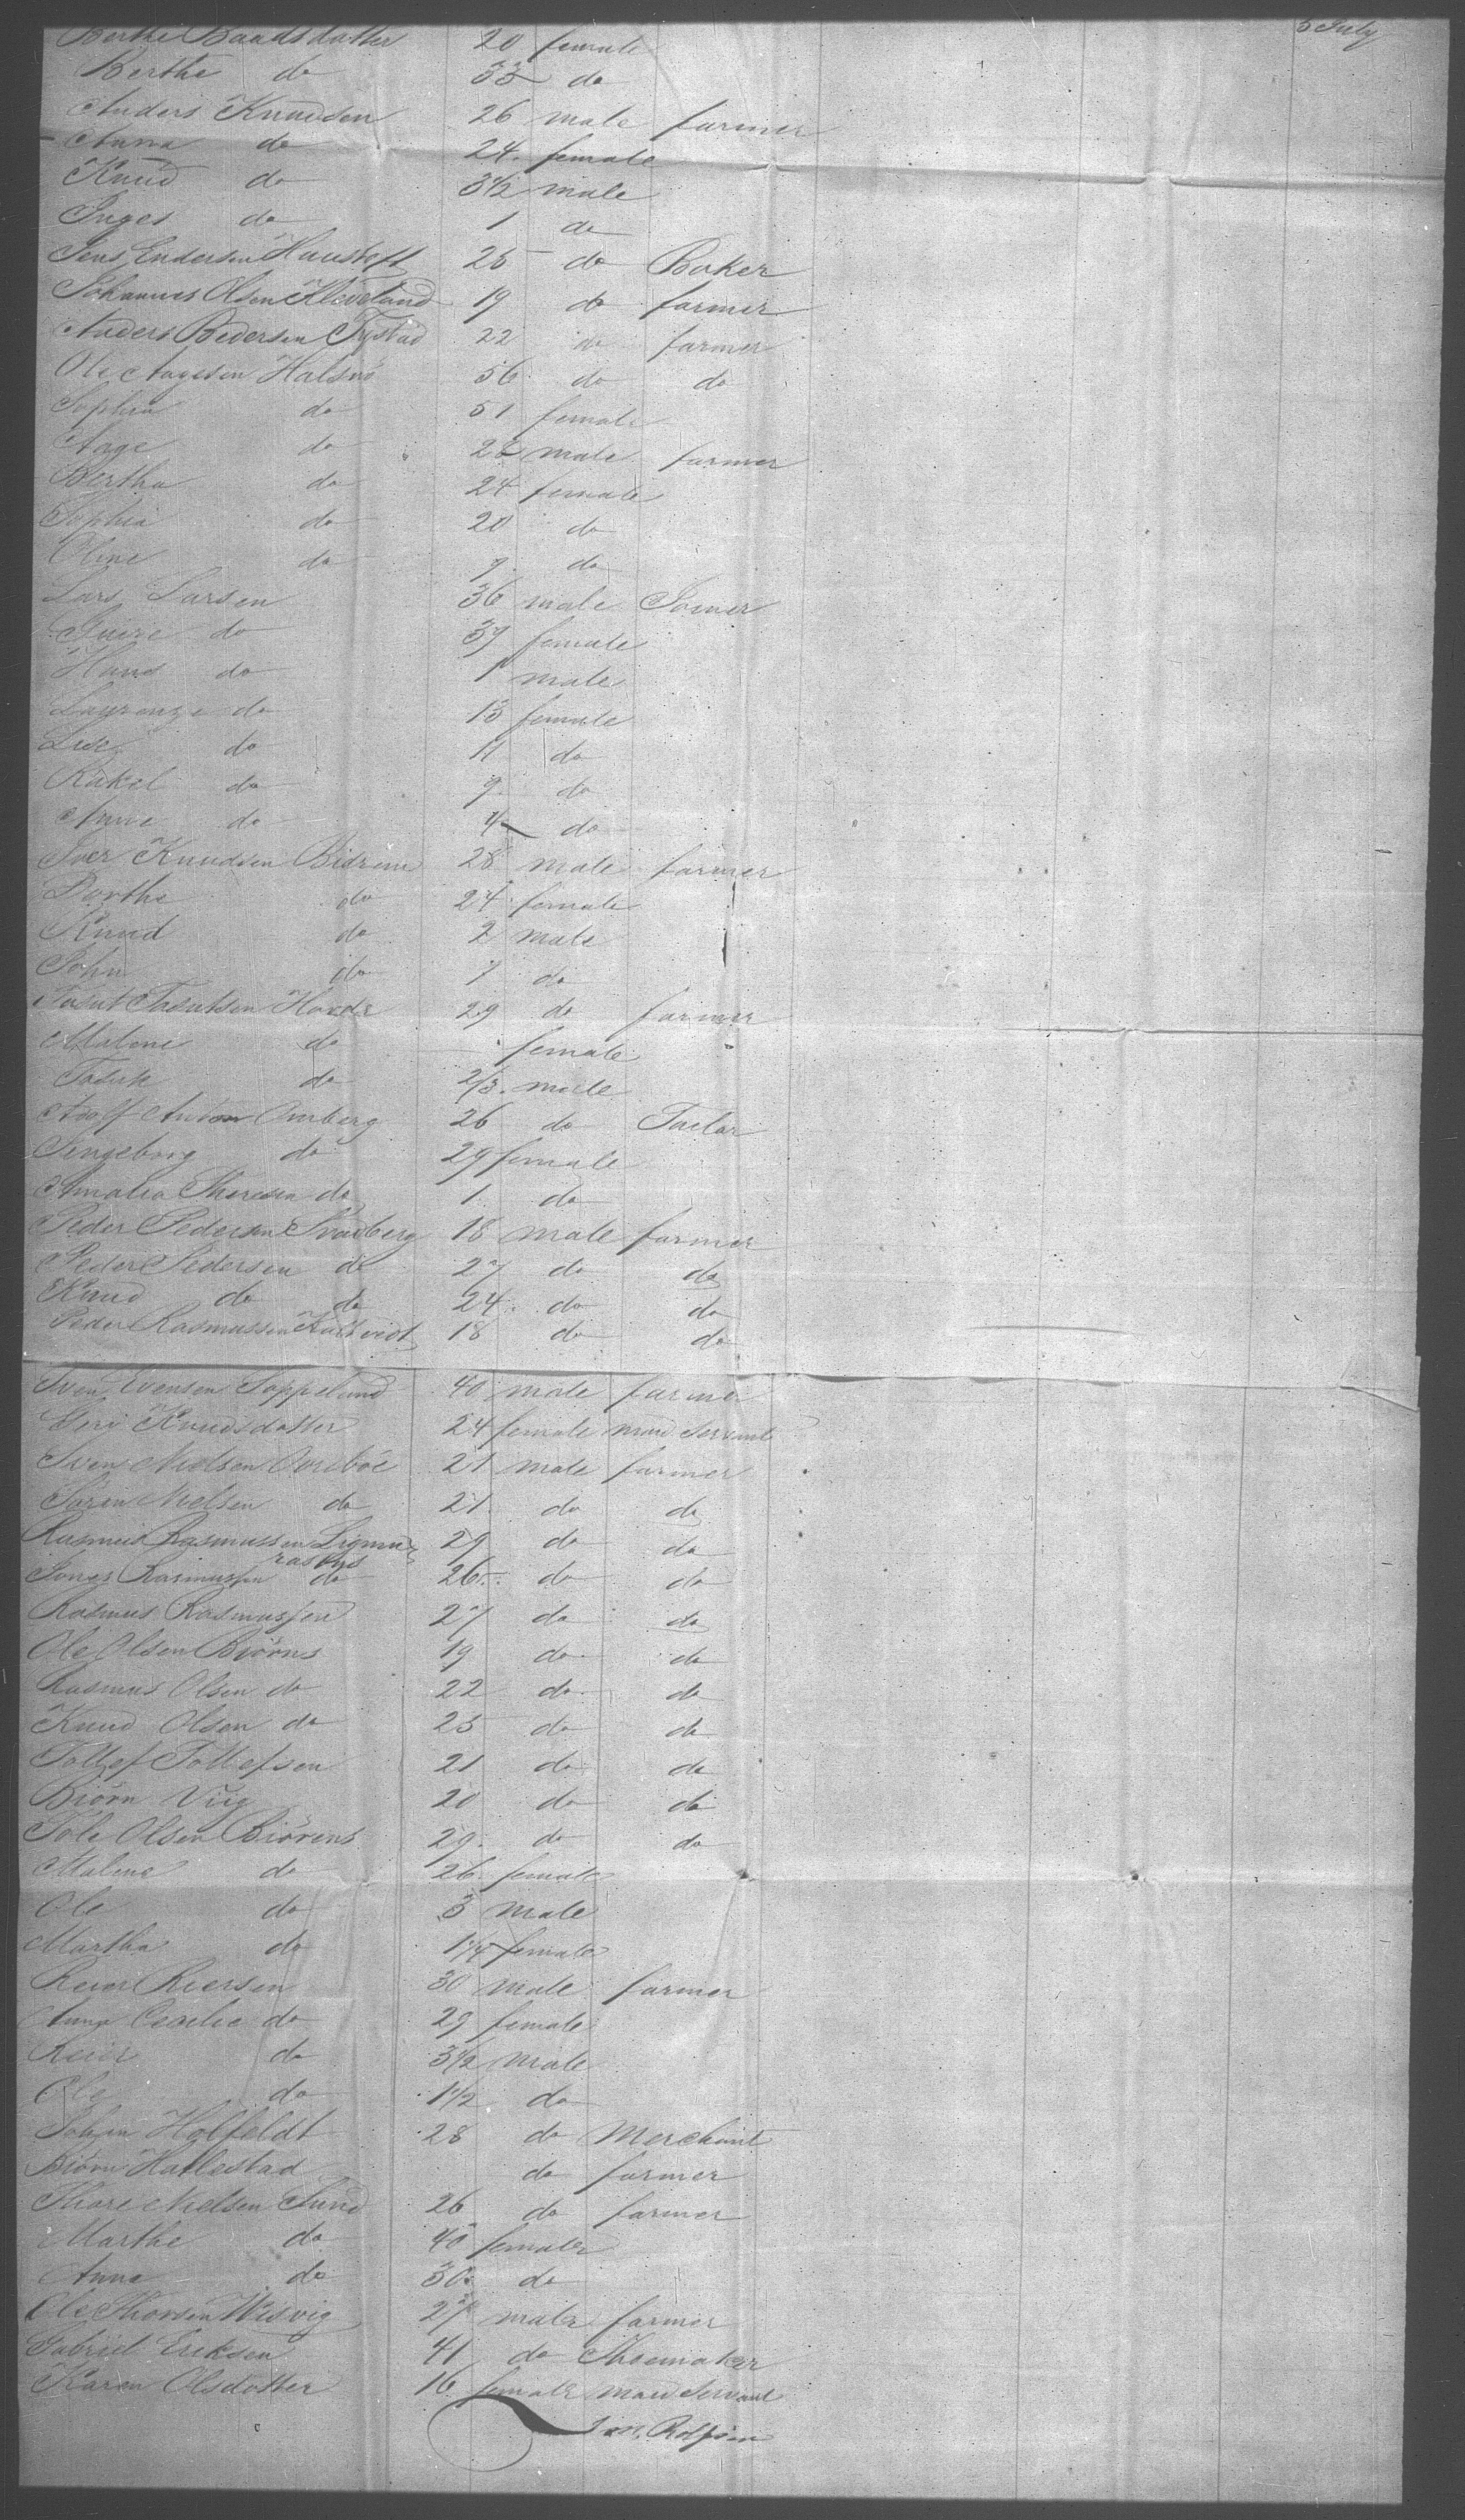 5 July
Berthe Baadsdatter 20 female
Berthe do 33 do
Anders Knudsen 26 male farmer
Anna do 24 female
Knud do 3 1/2 male
Inges do 1 do
Jens Endersen 25 do Baker
Johannes Olsen Kleveland 19 do farmer
Anders Pedersen 22 do farmer
Ole Aagesen Halsnö 56 do do
Sophia do 51 female
Aage do 28 male farmer
Bertha do 24 female
Sophia do 20 do
Oline do 9 do
Lars Larsen 36 male Joiner
do 37 female
Hans do 1 male
do 13 female
Lise do 11 do
Rakel do 9 do
Anne do do
Iver Knudsen 28 male farmer
Dorthe do 24 female
Knud do 2 male
John do 1 do
29 do farmer
Malene do female
do 2/3 male
Adolf Anton Omberg 26 do Taelor
Ingeborg do 29 female
Amalia Theresia do 1 do
Peder Pedersen Svadberg 18 male farmer
Peder Pedersen do 27 do do
Knud do do 24 do do
Peder Rasmussen 18 do do
Sven Evensen 40 male farmer
Knudsdatter 24 female maid Servant
Sven Nielsen 21 male farmer
Sören Nielsen do 21 do do
Rasmus Rasmussen 29 do do
Jonas Rasmussen do 26 do do
Rasmus Rasmussen 27 do do
Ole Olsen Biörns 19 do do
Rasmus Olsen do 22 do do
Knud Olsen do 25 do do
Tollef Tollefsen 21 do do
Biörn Viig 20 do do
Tole Olsen Biörens 29 do do
Malene do 26 female
Ole do 3 male
Martha do 1 1/4 female
Reier Reiersen 30 male farmer
Anna Cecilie do 29 female
Reier do 3 1/2 male
Ole do 1 1/2 do
Johan Holfeldt 28 do Merchant
Biörn Hallestad do farmer
Thore Nielsen Sund 26 do farmer
Marthe do 40 female
Anna do 30 do
Ole Thorsen Wisvig 27 male farmer
Gabriel Eriksen 41 do Shoemaker
Karen Olsdatter 16 female maid Servant